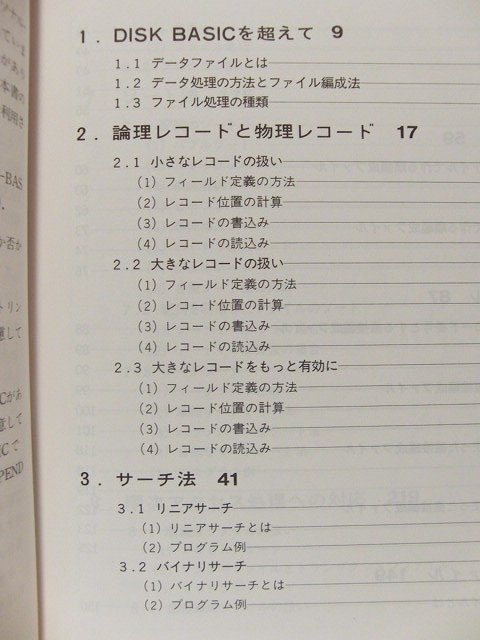 1. DISK BASICを超えて 9
1.1 データファイルとは
1.2 データ処理の方法とファイル編成法
1.3 ファイル処理の種類
2. 論理レコードと物理レコード 17
2.1 小さなレコードの扱い
(1) フィールド定義の方法
(2) レコード位置の計算
(3) レコードの書込み
(4) レコードの読込み
2.2 大きなレコードの扱い
(1) フィールド定義の方法
(2) レコード位置の計算
(3) レコードの書込み
(4) レコードの読込み
2.3 大きなレコードをもっと有効に
(1) フィールド定義の方法
(2) レコード位置の計算
(3) レコードの書込み
(4) レコードの読込み
3. サーチ法 41
3.1 リニアサーチ
(1) リニアサーチとは
(2) プログラム例
3.2 バイナリサーチ
(1) バイナリサーチとは
(2) プログラム例